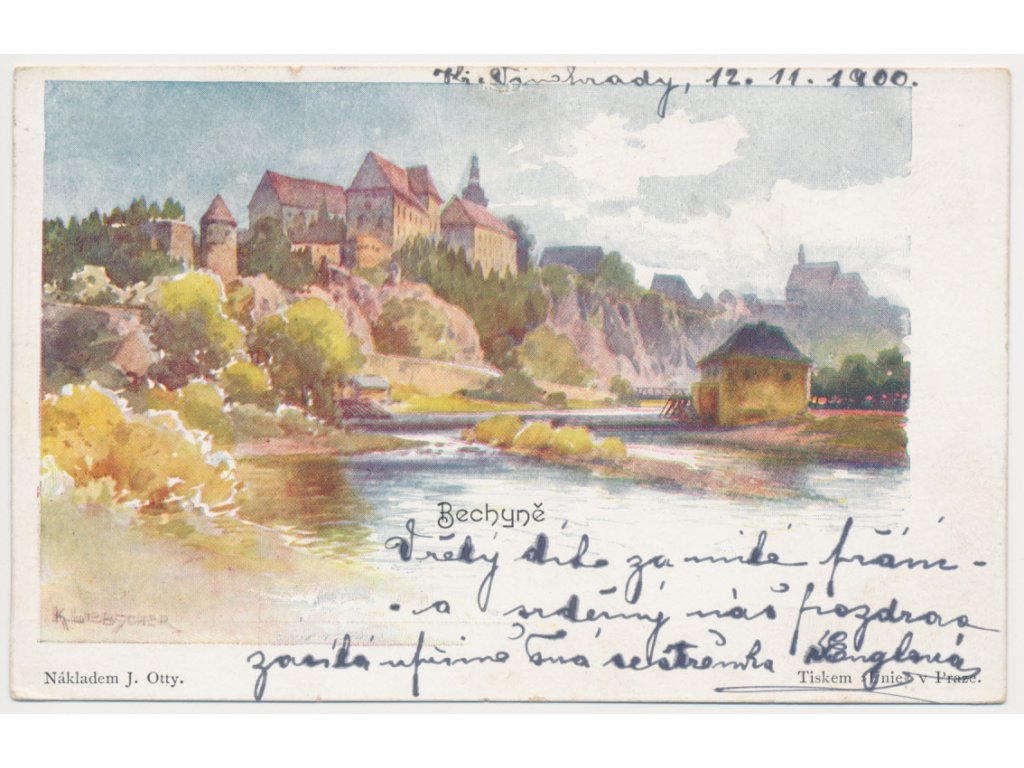 Kr. Vinohrady, 12. 11. 1900.
Bechyně
Vřelý dík za milé přání -
- a srdečný náš pozdrav
zasílá upřímně Tvá sestřenka Englová
K. LIEBSCHER
Nákladem J. Otty.
Tiskem „Unie“ v Praze.